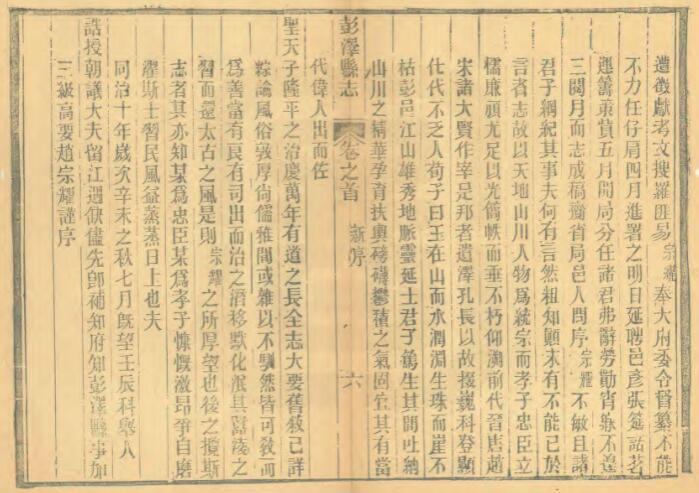 遺徵獻考文搜羅匪易宗耀奉大府委令督纂不能
不力任仔肩四月進署之明日延聘邑彥張筵話茗
運籌策費五月開局分任諸君弗辭勞勩宵旰不遑
三閱月而志成稿齎省局邑人問序宗耀不敏且諸
君子綱紀其事夫何有言然粗知顛末有不能已於
言者志故以天地山川人物爲統宗而孝子忠臣立
懦廉頑尤足以光簡帙而垂不朽仰溯前代晉唐趙
宋諸大賢作宰是邦者遺澤孔長以故掇巍科登顯
仕代不乏人荀子曰玉在山而水潤淵生珠而崖不
枯彭邑江山雄秀地脈靈延士君子篤生其間吐納
山川之精華孕育扶輿磅礴鬱積之氣固宜其有當
彭澤縣志
卷之首
新序
六
代偉人出而佐
聖天子隆平之治慶萬年有道之長全志大要舊敘已詳
粽論風俗敦厚尙儒雅間或雜以不馴然皆可敎而
爲善當有良有司出而治之潛移默化泯其囂凌之
習而還太古之風是則宗耀之所厚望也後之攬斯
志者其亦知某爲忠臣某爲孝子慷慨激昂爭自磨
濯斯士習民風益蒸蒸日上也夫
同治十年歲次辛未之秋七月旣望壬辰科舉人
誥授朝議大夫留江遇缺儘先卽補知府知彭澤縣事加
三級高要趙宗耀謹序